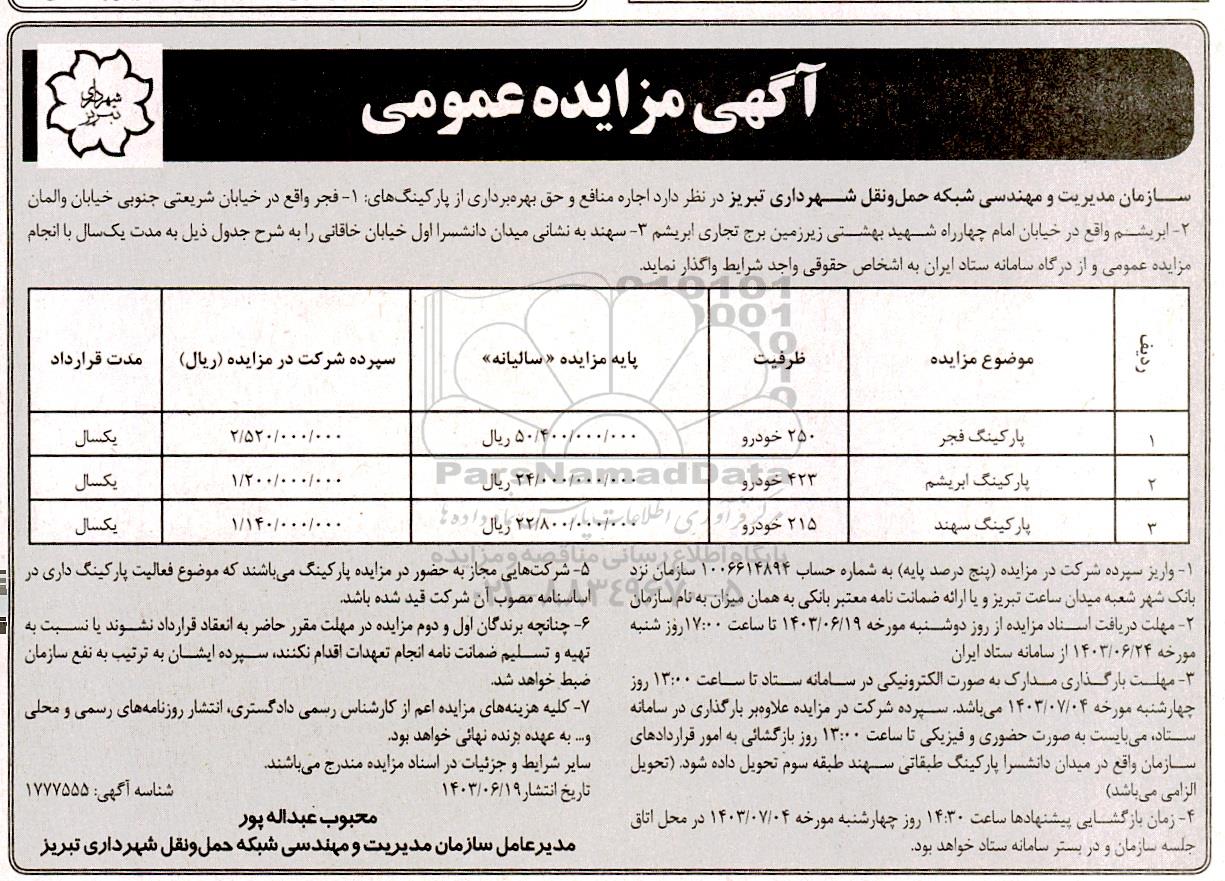 آگهی مزایده عمومی
شهرداری
تبریز
سازمان مدیریت و مهندسی شبکه حمل‌ونقل شهرداری تبریز در نظر دارد اجاره منافع و حق بهره‌برداری از پارکینگ‌های: ۱- فجر واقع در خیابان شریعتی جنوبی خیابان والمان
۲- ابریشم واقع در خیابان امام چهارراه شهید بهشتی زیرزمین برج تجاری ابریشم ۳- سهند به نشانی میدان دانشسرا اول خیابان خاقانی را به شرح جدول ذیل به مدت یک‌سال با انجام
مزایده عمومی و از درگاه سامانه ستاد ایران به اشخاص حقوقی واجد شرایط واگذار نماید.
ردیف موضوع مزایده ظرفیت پایه مزایده «سالیانه» سپرده شرکت در مزایده (ریال) مدت قرارداد
۱ پارکینگ فجر ۲۵۰ خودرو ۵۰/۴۰۰/۰۰۰/۰۰۰ ریال ۲/۵۲۰/۰۰۰/۰۰۰ یکسال
۲ پارکینگ ابریشم ۴۲۳ خودرو ۲۴/۰۰۰/۰۰۰/۰۰۰ ریال ۱/۲۰۰/۰۰۰/۰۰۰ یکسال
۳ پارکینگ سهند ۲۱۵ خودرو ۲۲/۸۰۰/۰۰۰/۰۰۰ ریال ۱/۱۴۰/۰۰۰/۰۰۰ یکسال
ParsNamadData
پایگاه اطلاع رسانی مناقصه و مزایده
۰۲۱-۸۸۳۴۹۶۷۰-۵
۱- واریز سپرده شرکت در مزایده (پنج درصد پایه) به شماره حساب ۱۰۰۶۶۱۴۸۹۴ سازمان نزد
بانک شهر شعبه میدان ساعت تبریز و یا ارائه ضمانت نامه معتبر بانکی به همان میزان به نام سازمان
۲- مهلت دریافت اسناد مزایده از روز دوشنبه مورخه ۱۴۰۳/۰۶/۱۹ تا ساعت ۱۷:۰۰روز شنبه
مورخه ۱۴۰۳/۰۶/۲۴ از سامانه ستاد ایران
۳- مهلت بارگذاری مدارک به صورت الکترونیکی در سامانه ستاد تا ساعت ۱۳:۰۰ روز
چهارشنبه مورخه ۱۴۰۳/۰۷/۰۴ می‌باشد. سپرده شرکت در مزایده علاوه‌بر بارگذاری در سامانه
ستاد، می‌بایست به صورت حضوری و فیزیکی تا ساعت ۱۳:۰۰ روز بازگشائی به امور قراردادهای
سازمان واقع در میدان دانشسرا پارکینگ طبقاتی سهند طبقه سوم تحویل داده شود. (تحویل
الزامی می‌باشد)
۴- زمان بازگشایی پیشنهادها ساعت ۱۴:۳۰ روز چهارشنبه مورخه ۱۴۰۳/۰۷/۰۴ در محل اتاق
جلسه سازمان و در بستر سامانه ستاد خواهد بود.
۵- شرکت‌هایی مجاز به حضور در مزایده پارکینگ می‌باشند که موضوع فعالیت پارکینگ داری در
اساسنامه مصوب آن شرکت قید شده باشد.
۶- چنانچه برندگان اول و دوم مزایده در مهلت مقرر حاضر به انعقاد قرارداد نشوند یا نسبت به
تهیه و تسلیم ضمانت نامه انجام تعهدات اقدام نکنند، سپرده ایشان به ترتیب به نفع سازمان
ضبط خواهد شد.
۷- کلیه هزینه‌های مزایده اعم از کارشناس رسمی دادگستری، انتشار روزنامه‌های رسمی و محلی
و... به عهده برنده نهائی خواهد بود.
سایر شرایط و جزئیات در اسناد مزایده مندرج می‌باشند.
تاریخ انتشار۱۴۰۳/۰۶/۱۹ شناسه آگهی: ۱۷۷۷۵۵۵
محبوب عبداله پور
مدیرعامل سازمان مدیریت و مهندسی شبکه حمل‌ونقل شهرداری تبریز